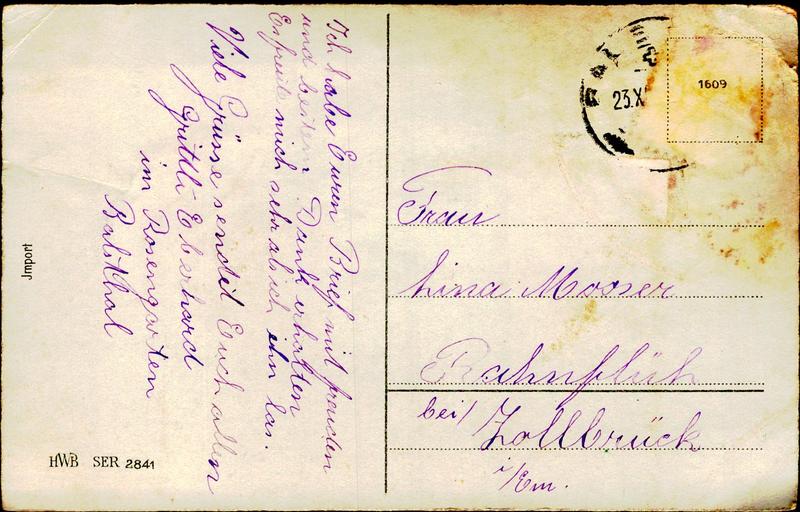 Ich habe Euren Brief mit freuden
und bestem Dank erhalten
Es freute mich sehr als ich ihn las.
Viele Grüsse sendet Euch allen
Grittli Eberhard
im Rosengarten
Balsthal
Jmport
HWB SER 2841
1609
23.X
Frau
Lina Mosser
Rahnflüh
bei/ Zollbrück
i/Em.